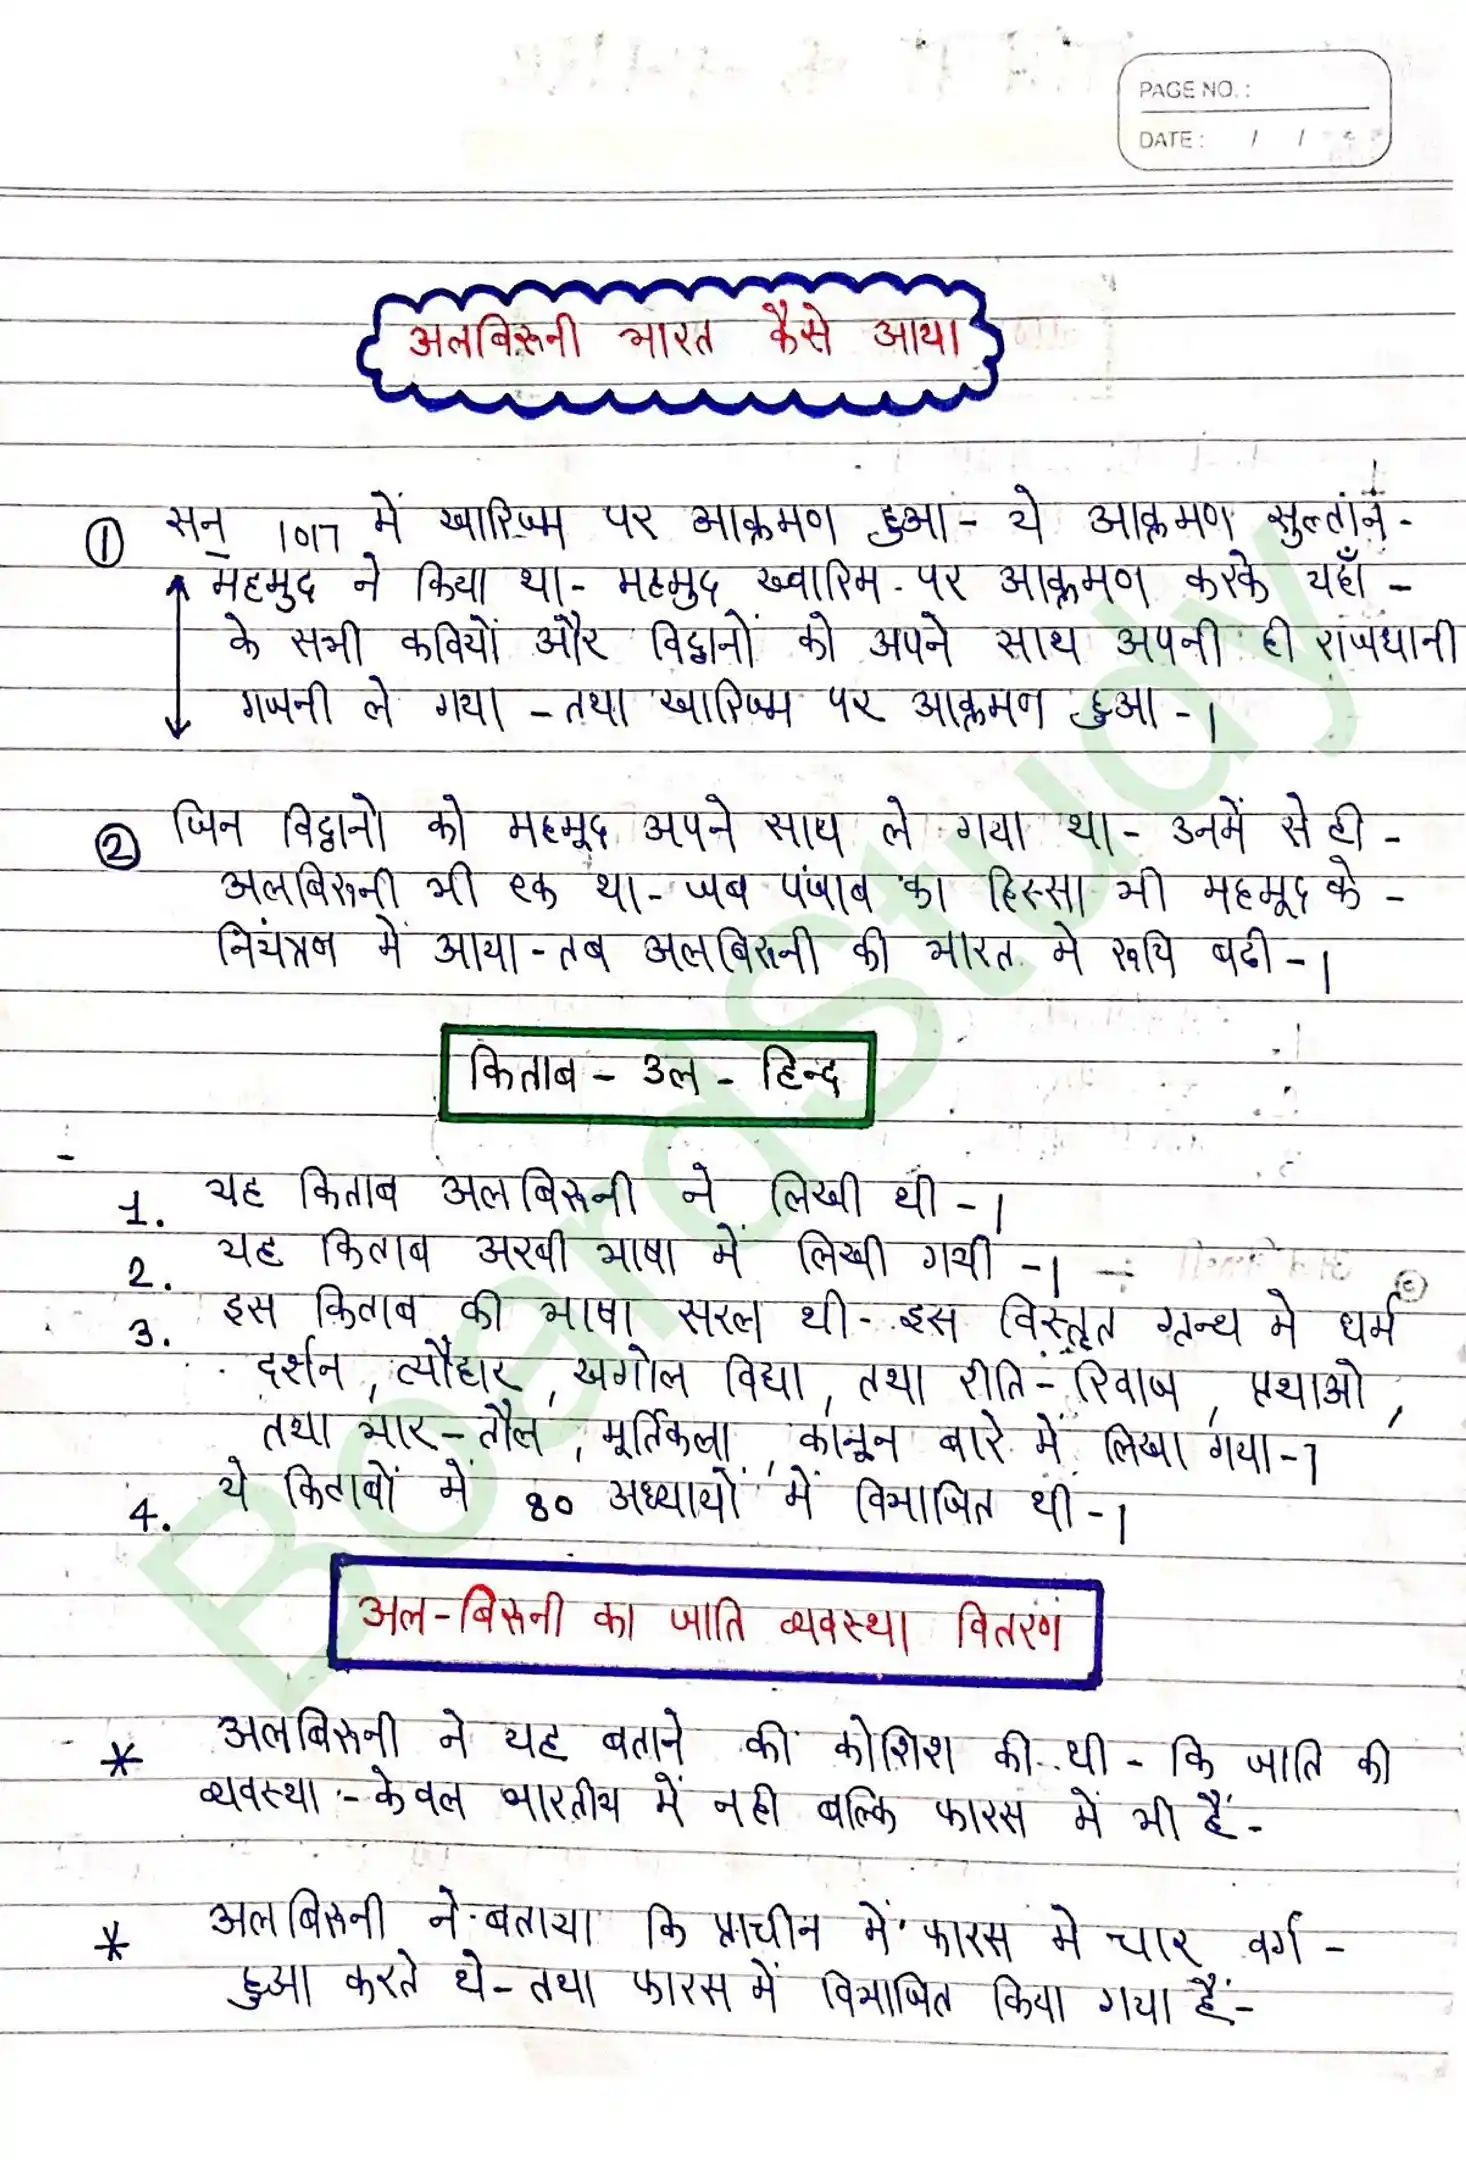 PAGE NO. :
DATE : / /
अलबिरूनी भारत कैसे आया
① सन् 1017 में ख्वारिज्म पर आक्रमण हुआ - ये आक्रमण सुल्तान -
महमुद ने किया था - महमुद ख्वारिम - पर आक्रमण करके यहाँ -
के सभी कवियों और विद्वानों को अपने साथ अपनी ही राजधानी
गजनी ले गया - तथा ख्वारिज्म पर आक्रमन हुआ - ।
② जिन विद्वानो को महमूद अपने साथ ले गया था - उनमें से ही -
अलबिरूनी भी एक था - जब पंजाब का हिस्सा भी महमूद के -
नियंत्रन में आया - तब अलबिरूनी की भारत मे रूचि बढी - ।
किताब - उल - हिन्द
1. यह किताब अलबिरूनी ने लिखी थी - ।
2. यह किताब अरबी भाषा में लिखी गयी - ।
3. इस किताब की भाषा सरल थी - इस विस्तृत ग्रन्थ मे धर्म
दर्शन , त्यौहार , खगोल विद्या , तथा रीति - रिवाज , प्रथाओ ,
तथा भार - तौल , मूर्तिकला , कानून बारे में लिखा गया - ।
4. ये किताबों में 80 अध्यायों में विभाजित थी - ।
अल - बिरूनी का जाति व्यवस्था वितरण
* अलबिरूनी ने यह बताने की कोशिश की थी - कि जाति की
व्यवस्था :- केवल भारतीय में नही बल्कि फारस में भी हैं -
* अलबिरूनी ने बताया कि प्राचीन में फारस मे चार वर्ग -
हुआ करते थे - तथा फारस में विभाजित किया गया हैं -
BoardStudy